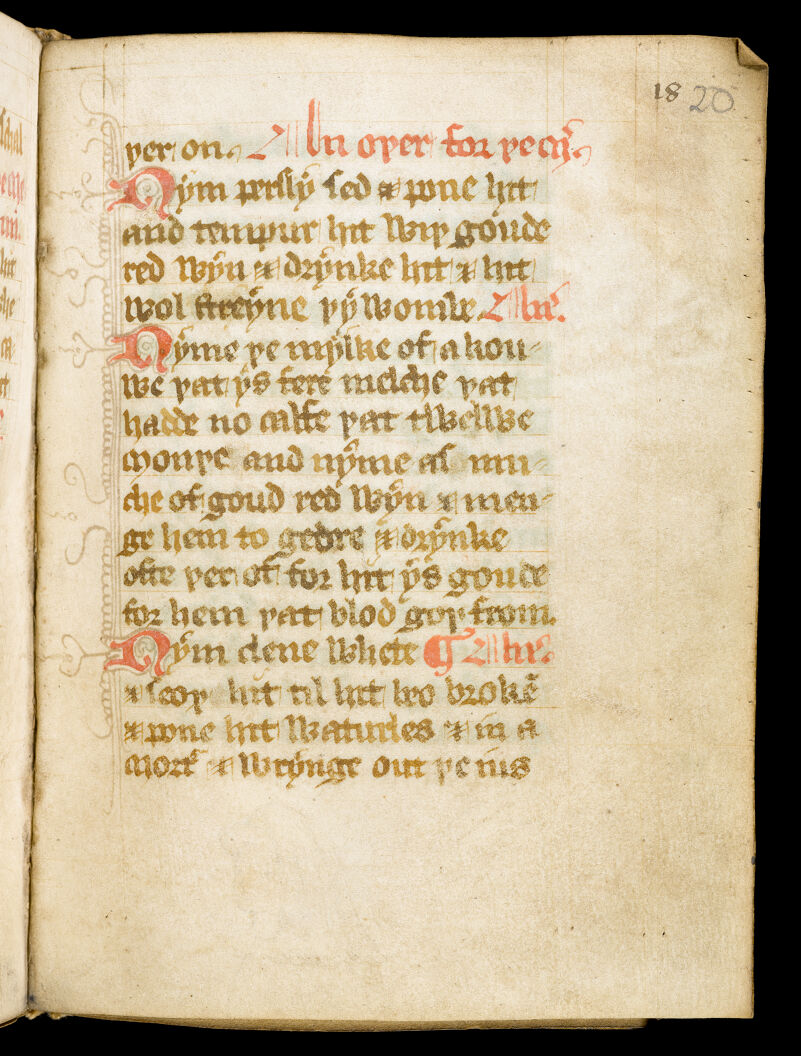 18 20
þer on. An oþer for þe cry.
Nym persly sed & pone hit
and tempur hit wiþ goude
red wyn & drynke hit & hit
wol streyne þy wombe. Alit.
Nyme þe mylke of a kou-
we þat ys fere melche þat
hadde no calfe þat twelwe
monþe and nyme as mu-
che of goud red wyn & men-
ge hem to gedre & drynke
ofte þer of for hit ys goude
for hem þat blod goþ from.
Nym clene whete ¶
& seoþ hit til hit beo brokē
& pone hit waturles & in a
morter & wrynge out þe ius